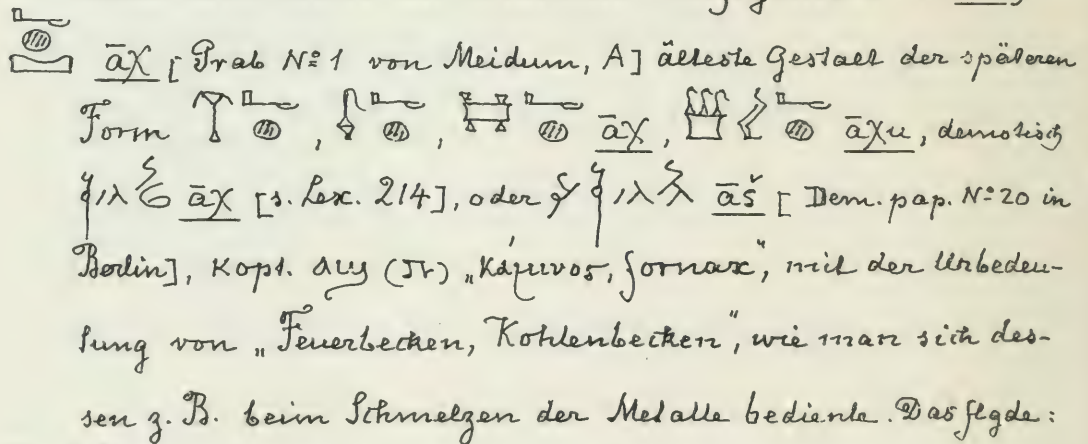 āχ [Grab Nº 1 von Meidum, A] älteste Gestalt der späteren
Form , , , āχ, āχu, demotisch
āχ [s. Lex. 214], oder āš [Dem. pap. Nº 20 in
Berlin], Kopt. ⲁϣ (π) „κάμινος, fornax“, mit der Urbedeu-
tung von „Feuerbecken, Kohlenbecken“, wie man sich des-
sen z. B. beim Schmelzen der Metalle bediente. Das flgde: